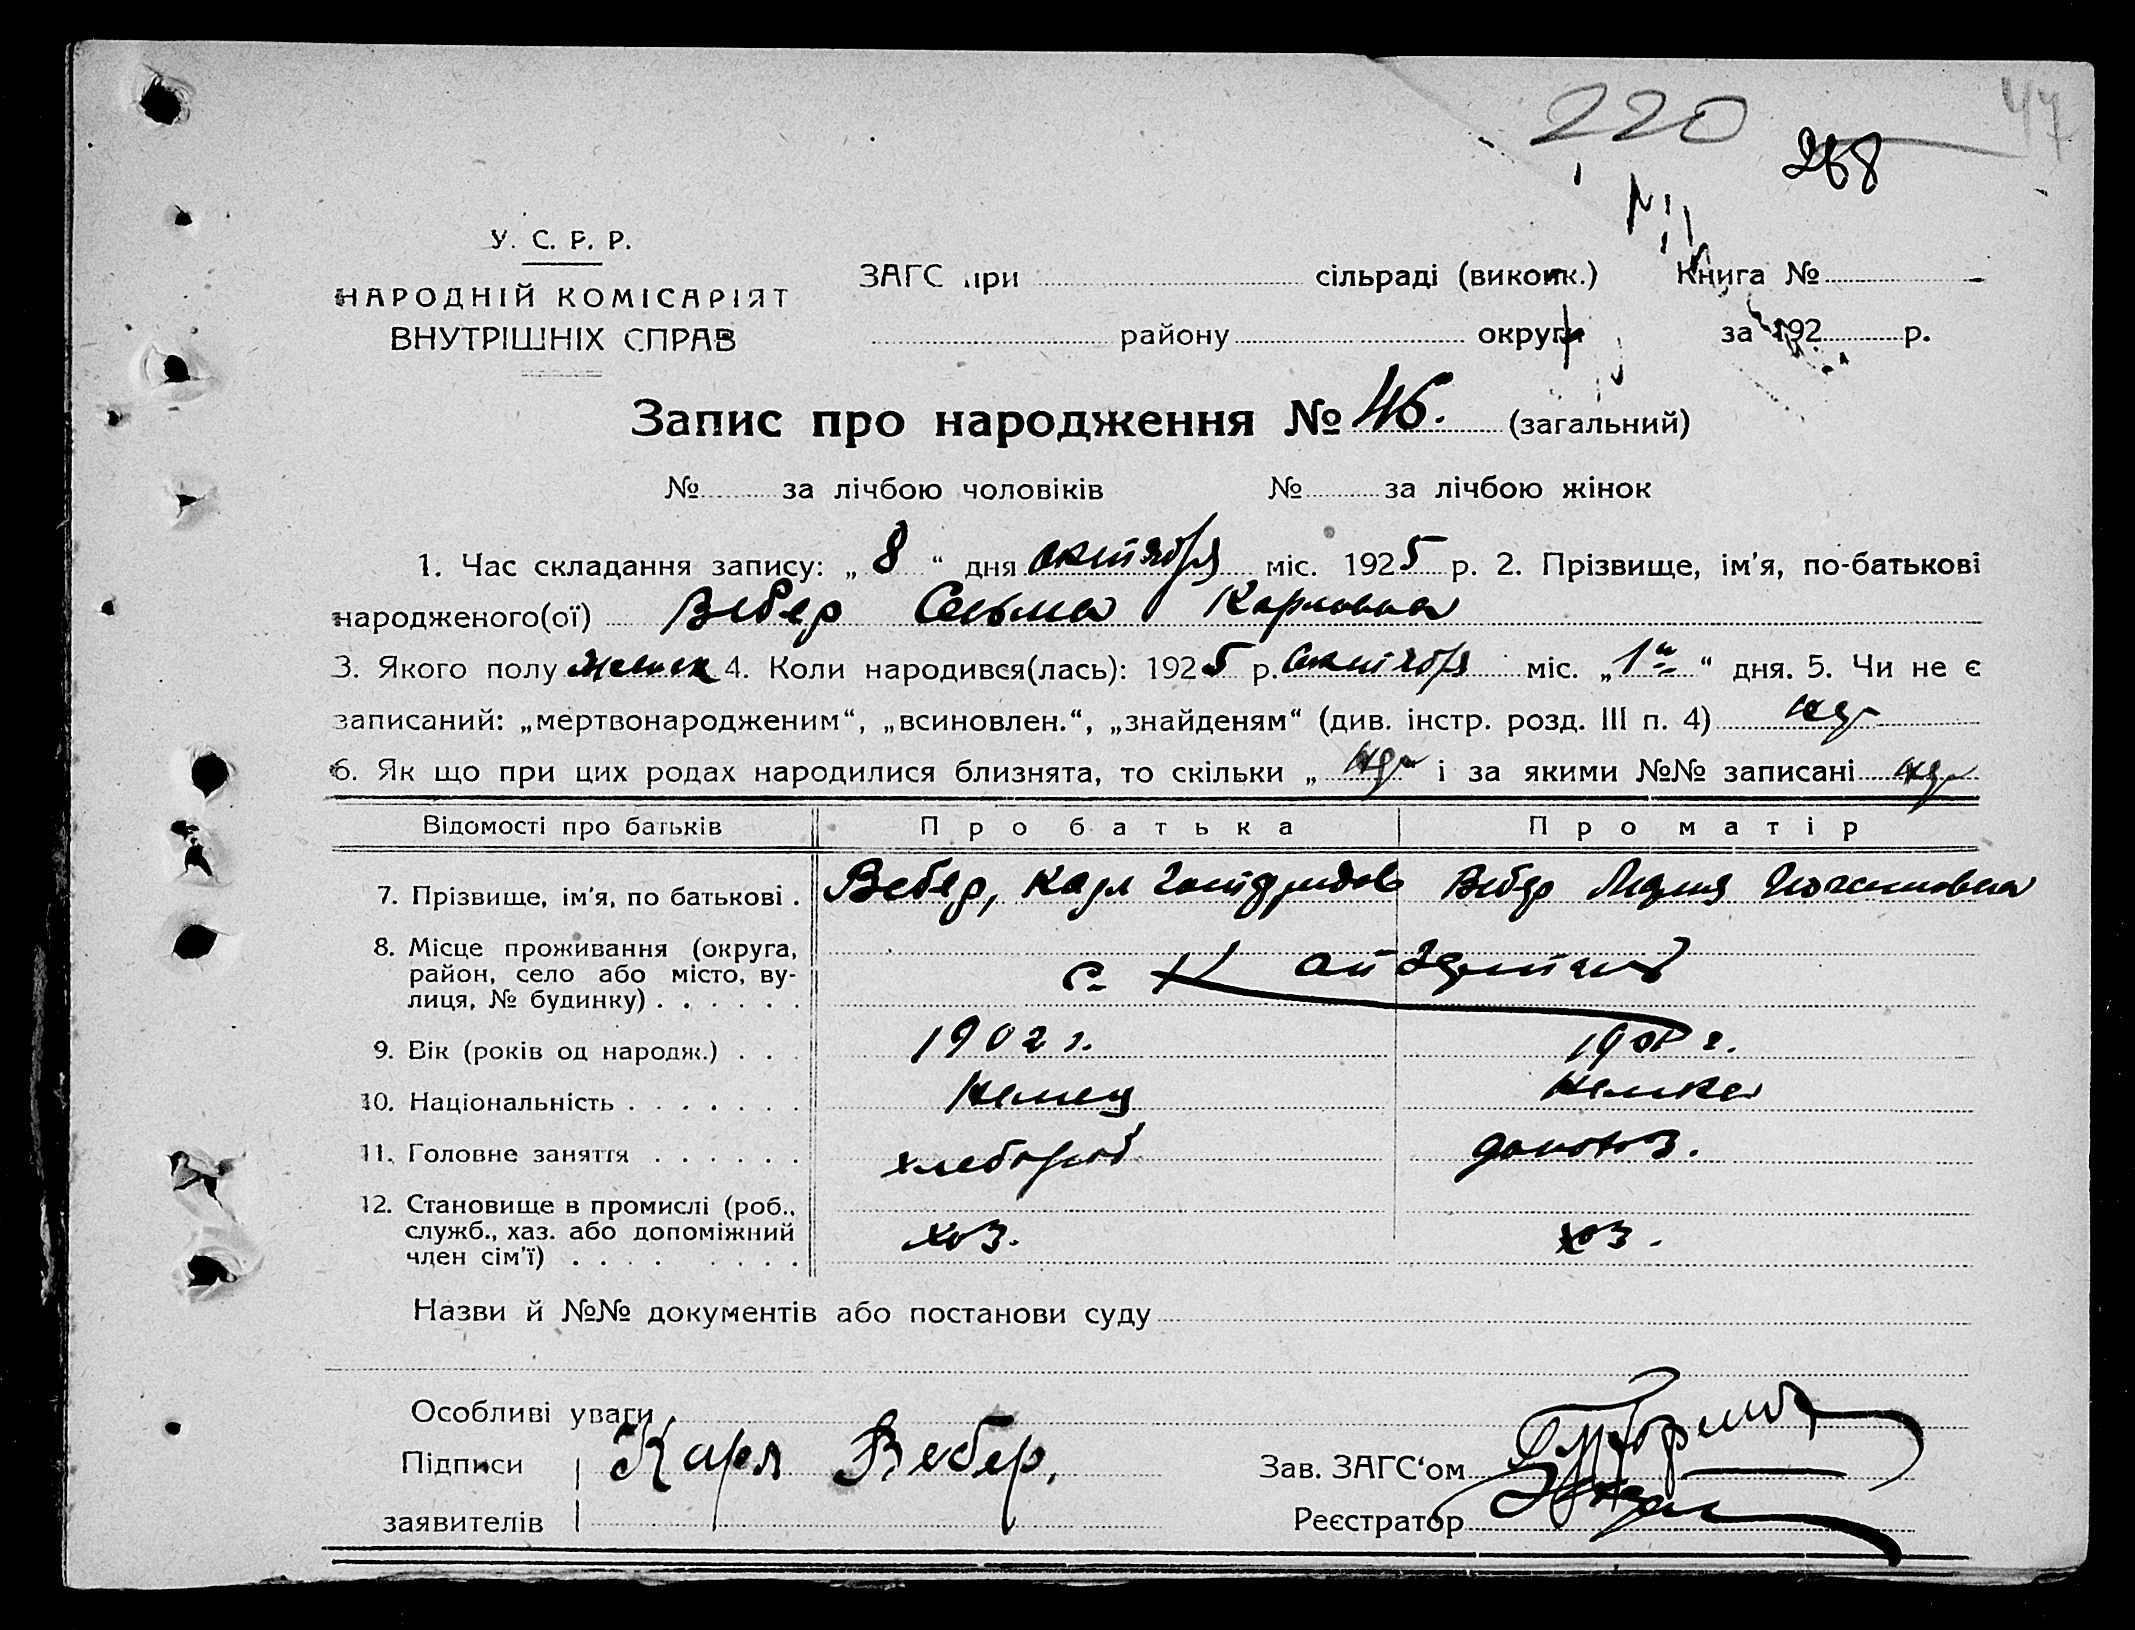 220
47
268
У. С. Р. Р.
НАРОДНІЙ КОМІСАРІЯТ
ВНУТРІШНІХ СПРАВ
ЗАГС при сільраді (виконк.) Книга №
району округи за 192 р.
Запис про народження № 46. (загальний)
№ за лічбою чоловіків № за лічбою жінок
1. Час складання запису: „ 8 “ дня октября міс. 1925 р. 2. Прізвище, ім'я, по-батькові
народженого(ої) Вебер Сельма Карловна
3. Якого полу женск 4. Коли народився(лась): 1925 р. октября міс. „ 1го “ дня. 5. Чи не є
записаний: „мертвонародженим“, „всиновлен.“, „знайденям“ (див. інстр. розд. III п. 4)
6. Як що при цих родах народилися близнята, то скільки „ і за якими №№ записані
Відомості про батьків Про батька Про матір
7. Прізвище, ім'я, по батькові . Вебер, Карл Готфридов Вебер Лидия
8. Місце проживання (округа,
район, село або місто, ву-
лиця, № будинку) . . . . . . с.
9. Вік (років од народж.) . . . 1902 г. 1901 г.
10. Національність . . . . . . . Немец Немка
11. Головне заняття . . . . . . хлебороб домохоз.
12. Становище в промислі (роб.,
служб., хаз. або допоміжний
член сім'ї) . . . . . . . . хоз. хоз.
Назви й №№ документів або постанови суду
Особливі уваги
Підписи Карл Вебер. Зав. ЗАГС‘ом
заявителів Реєстратор